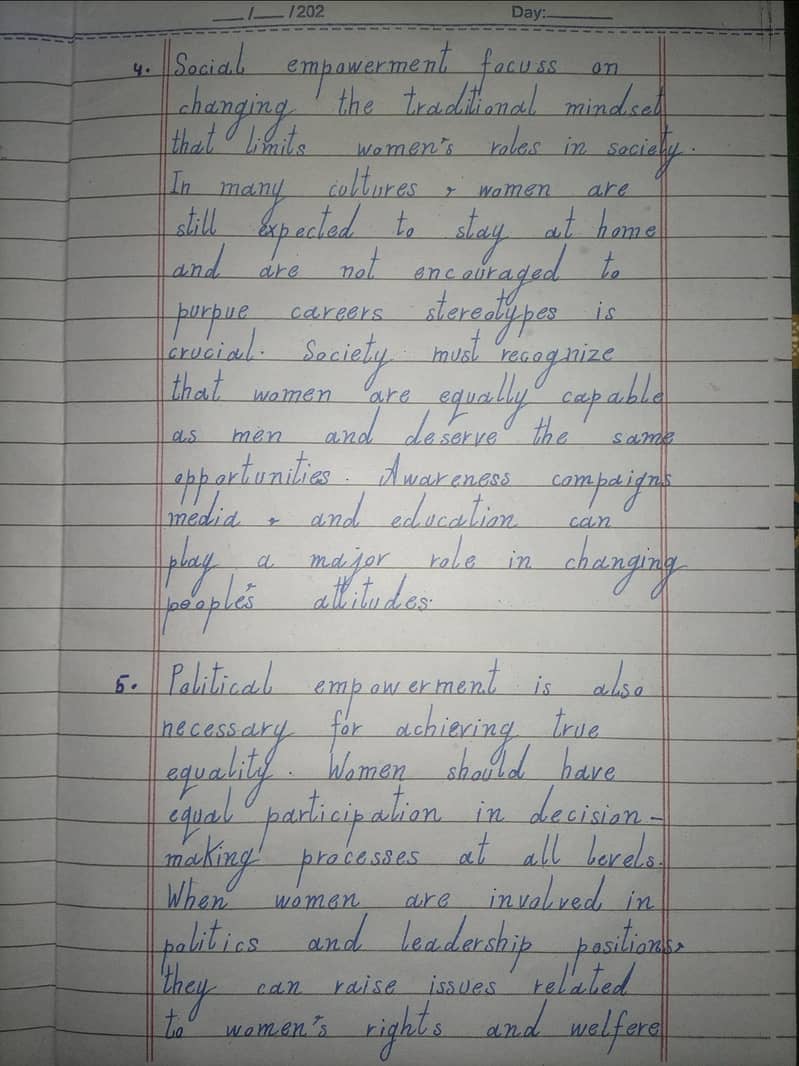 __/__/202 Day:______
4. Social empowerment focuss on
changing the traditional mindset
that limits women's roles in society.
In many cultures, women are
still expected to stay at home
and are not encouraged to
purpue careers stereotypes is
crucial. Society must recognize
that women are equally capable
as men and deserve the same
opportunities. Awareness compaigns
media, and education can
play a major role in changing
people's attitudes.
5. Political empowerment is also
necessary for achieving true
equality. Women should have
equal participation in decision-
making processes at all levels.
When women are involved in
politics and leadership positions,
they can raise issues related
to women's rights and welfere